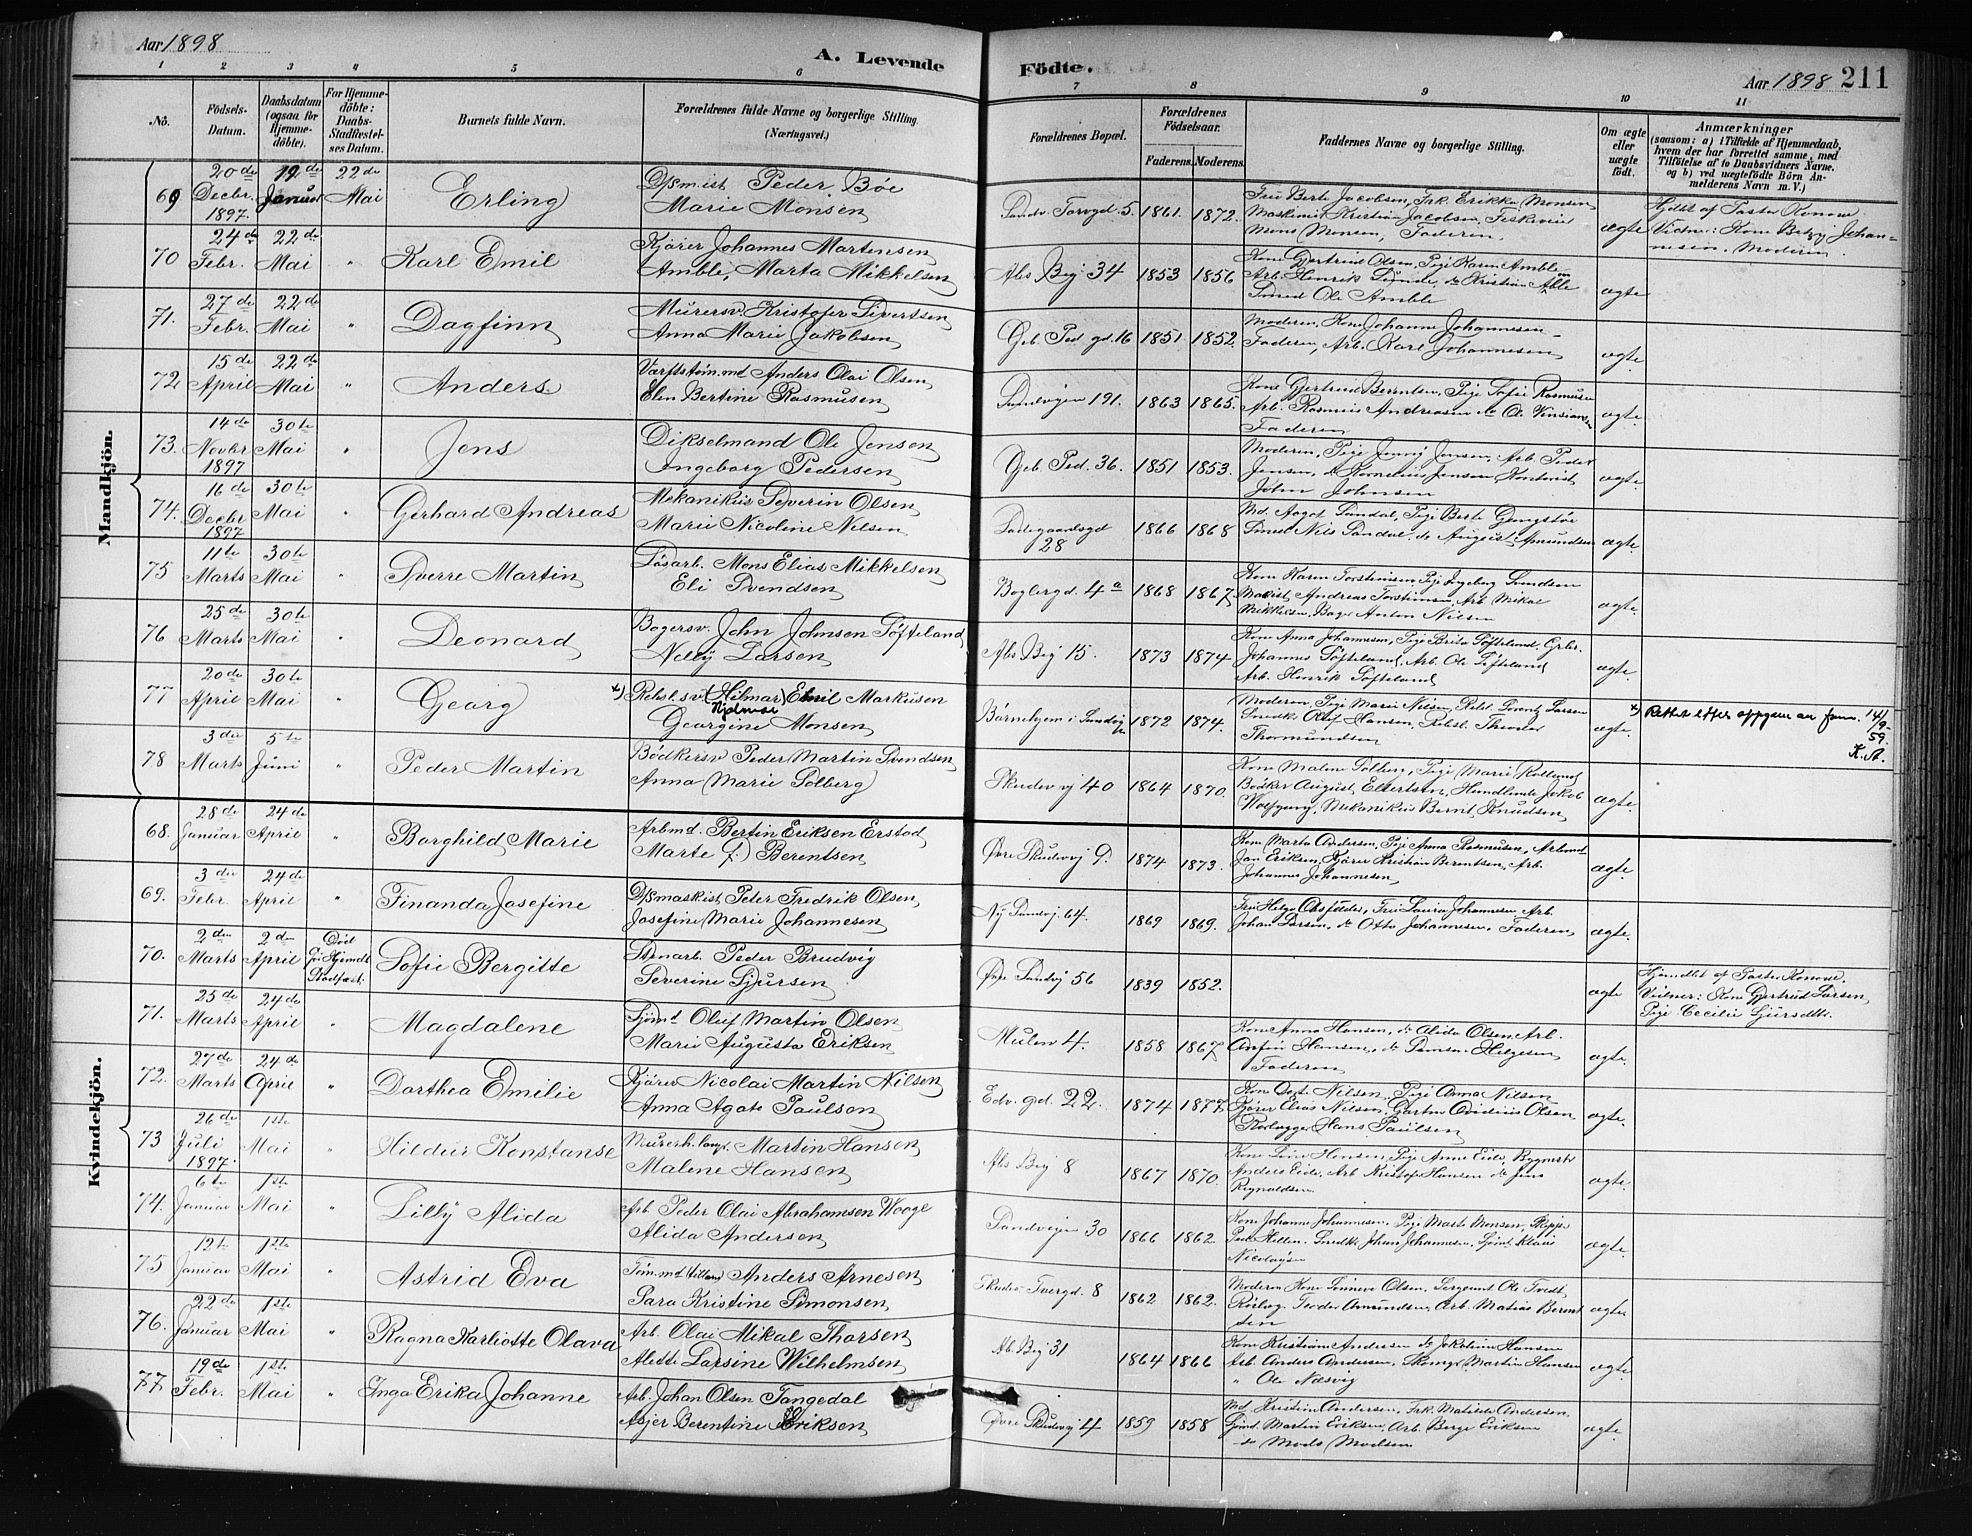 Aar 1898
A. Levende Födte.
Aar 1898 211
1 2 3 4 5 6 7 8 9 10 11
No.
Födsels-Datum.
Daabsdatum (ogsaa for Hjemme-döbte).
For Hjemme-döbte: Daabs-Stadfæstel-ses Datum.
Barnets fulde Navn.
Forældrenes fulde Navne og borgerlige Stilling. (Næringsvei.)
Forældrenes Bopæl.
Forældrenes Födselsaar.
Faderens. Moderens.
Faddernes Navne og borgerlige Stilling.
Om ægte eller uægte födt.
Anmærkninger
(saasom: a) i Tilfælde af Hjemmedaab, hvem der har forrettet samme, med Tilföielse af to Daabsvidners Navne. og b) ved uægtefödte Börn Anmelderens Navn m. V.)
Mandkjön.
69 20de Decbr. 1897. 19de Januar 22de Mai Erling
Peder Böe
Marie Monsen
Sandv. Torvgd. 5. 1861. 1872.
Fru Berte Jacobsen, Frk. Erikka Monsen
Maskinist Kristian Jacobsen, Fiskeuis
Mons Monsen, Faderen.
ægte
Hjdbt af Pastor Konow
Vidner: Kone Betzy Johannesen, Moderen.
70 24de Febr. 22de Mai " Karl Emil
Kjörer Johannes Martensen
Amble, Marta Mikkelsen
Abs Bej 34 1853 1856
Kone Gjertrud Olsen, Pige Karen Amble
Smed Ole Amble
ægte
71. 27de Febr. 22de Mai " Dagfinn
Murersv. Kristofer Sivertsen
Anna Marie Jakobsen
Geb. Ped. gd. 16 1851 1852.
Moderen, Kone Johanne Johannesen
Faderen, Arb. Karl Johannesen
ægte
72 15de April 22de Mai " Anders
Værftstöm.md Anders Olai Olsen
Elen Bertine Rasmusen
Sandvigen 191. 1863 1865.
Kone Gjertrud Berntsen, Pige Sofie Rasmusen
Arb. Rasmus Andreasen do Ol.
Faderen
ægte
73. 14de Novbr 1897 30te Mai " Jens
Dikselmand Ole Jensen
Ingeborg Pedersen
Geb. Ped. 36. 1851 1853.
Moderen, Pige Jenny Jensen, Arb. Peder
Jensen, do Kornelius Jensen, Kontorist
John Johnsen
ægte
74. 16de Decbr 1897 30te Mai " Gerhard Andreas
Mekanikus Severin Olsen
Marie Nicoline Nilsen
Ladegaardsgd 28 1866 1868
Md. Aagot Sandal, Pige Berte
Smed Nils Sandal, do August Amundsen
ægte
75 11te Marts 30te Mai " Sverre Martin
Lösarb. Mons Elias Mikkelsen
Eli Svendsen
1868 1867
Kone Karen Torstensen, Pige Ingeborg Svendsen
Andreas Torstensen, Arb Mikal
Mikkelsen, Bager Anton Nilsen
ægte
76 25de Marts 30te Mai " Leonard
Bogersv. John Johnsen Söfteland
Nelly Larsen
Abs Bej 15. 1873 1874
Kone Anna Johannesen, Pige Brita Söfteland, Grbr.
Johannes Söfteland, Arb. Ole Söfteland
Arb. Henrik Söfteland
ægte
77 20de April 30te Mai " Georg
x) Rebsl.sv. (Hilmar) Emil Markusen
Hjalmar
Georgine Monsen
Börnehjem i Sandvig 1872 1874.
Moderen, Pige Marie Nilsen, Rebsl. Lorentz Larsen
Snedk. Olaf Hansen, Rebsl. Theodor
Thormundsen
ægte
x) Rettet efter oppgave av fam. 14/9-59. K.A.
78 3die Marts 5te Juni " Peder Martin
Bödkersv Peder Martin Svendsen
Anna Marie Solberg
Skudevj 40 1864 1870.
Kone Malene Solberg, Pige Marie Rolland
Bödker August Elbertsen, Handlende Jakob
Wolfgang, Mekanikus Bernt Knudsen
ægte
Kvindekjön.
68. 28de Januar 24de April " Borghild Marie
Arbmd. Bertin Eriksen Erstad
Marte (f.) Berentsen
Övre Skudevj 9. 1874 1873.
Kone Marta Andersen, Pige Anna Rasmusen, Arbmd
Jan Eriksen, Kjörer Kristian Berentsen, Arb.
Johannes Johannesen
ægte
69. 3die Febr. 24de April " Finanda Josefine
Peter Fredrik Olsen
Josefine Marie Johannesen
Ny Sandvj 64 1869 1869.
Fru Helga Olsen, Fru Laura Johannesen, Arb.
Johan Larsen, do Otto Johannesen, Faderen
ægte.
70. 2den Marts 2den April Död för Hjemdb. Stadfæst. Sofie Bergitte
Stenarb. Peder Brudvig
Severine Sjursen
Övre Sandvj 56 1839 1852.
ægte
Hjemdbt af Pastor Konow.
Vidner: Kone Gjertrud Larsen,
Pige Cecilie Sjursdtr.
71. 25de Marts 24de April " Magdalene
Sjömd Oluf Martin Olsen
Marie Augusta Eriksen
Mulen 4. 1858 1867
Kone Anna Hansen, do Alida Olsen, Arb.
Anfin Hansen, do Samson Helgesen
Faderen
ægte.
72. 27de Marts 24de April " Dorthea Emilie
Kjörer Nicolai Martin Nilsen
Anna Agate Paulsen
Edv. gd. 22. 1874 1877
Kone Nilsen, Pige Anna Nilsen
Kjörer Elias Nilsen, Gartner Ovidius Olsen
Rörlægger Hans Paulsen
ægte.
73 26de Juli 1897. 1ste Mai " Hildur Konstanse
Martin Hansen
Malene Hansen
Abs Bej 8 1867 1870.
Kone Lina Hansen, Pige Anna Eide, Bygmester
Anders Eide, Arb Kristofer Hansen do Jens
Reynoldsen
ægte.
74. 6te Januar 1ste Mai " Lilly Alida
Arb Peder Olai Abrahamsen Wooge
Alida Andersen
Sandvigen 30 1866 1862
Kone Johanne Johannesen, Pige Marte Monsen
Snedk. Johan Johannesen, Sjömd Klaus
Nicolaysen
ægte.
75 12te Januar 1ste Mai " Astrid Eva
Töm.md Anders Arnesen
Sara Kristine Simonsen
Skudev. Tvergd. 8 1862 1862.
Moderen, Kone Sönneve Olsen, Sergeant Ole Tvedt,
Rörlæg. Teodor Amundsen, Arb. Matias Berentsen
ægte
76. 22de Januar 1ste Mai " Ragna Karliotte Olava
Arb. Olai Mikal Thorsen
Alette Larsine Wilhelmsen
Ab. Bej 31 1864 1866
Kone Kristiane Andersen do Jakobine Hansen
Arb Anders Andersen, Martin Hansen
" Ole Næsvig
ægte
77. 19de Febr. 1ste Mai " Inga Erika Johanne
Arb. Johan Olsen Tangedal
Asjer Berentine Eriksen
Övre Skudevj 4 1859 1858
Md Kristine Andersen, Frk. Matilde Andersen,
Sjömd Martin Eriksen, Arb. Berge Eriksen
do Mads Madsen
ægte.